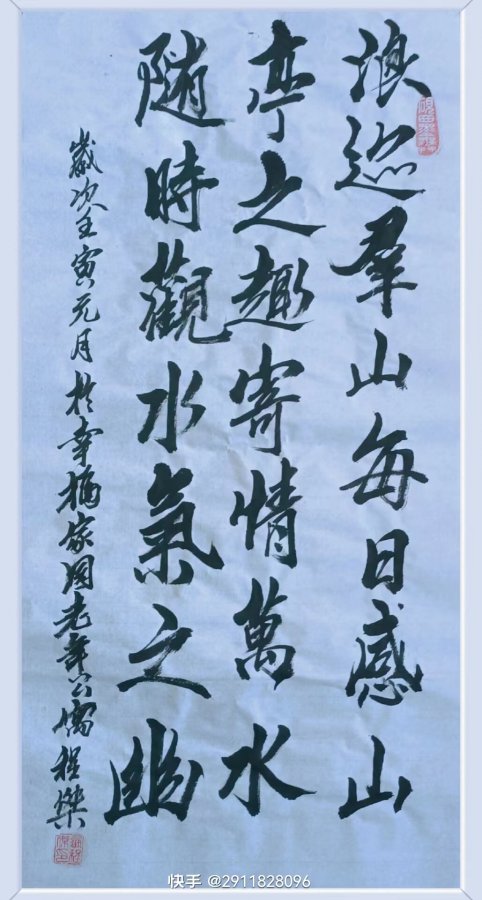 浪迹群山每日感山
亭之趣寄情萬水
隨時觀水氣之幽
歲次壬寅元月於幸福家園老年公寓程傑
快手 @2911828096